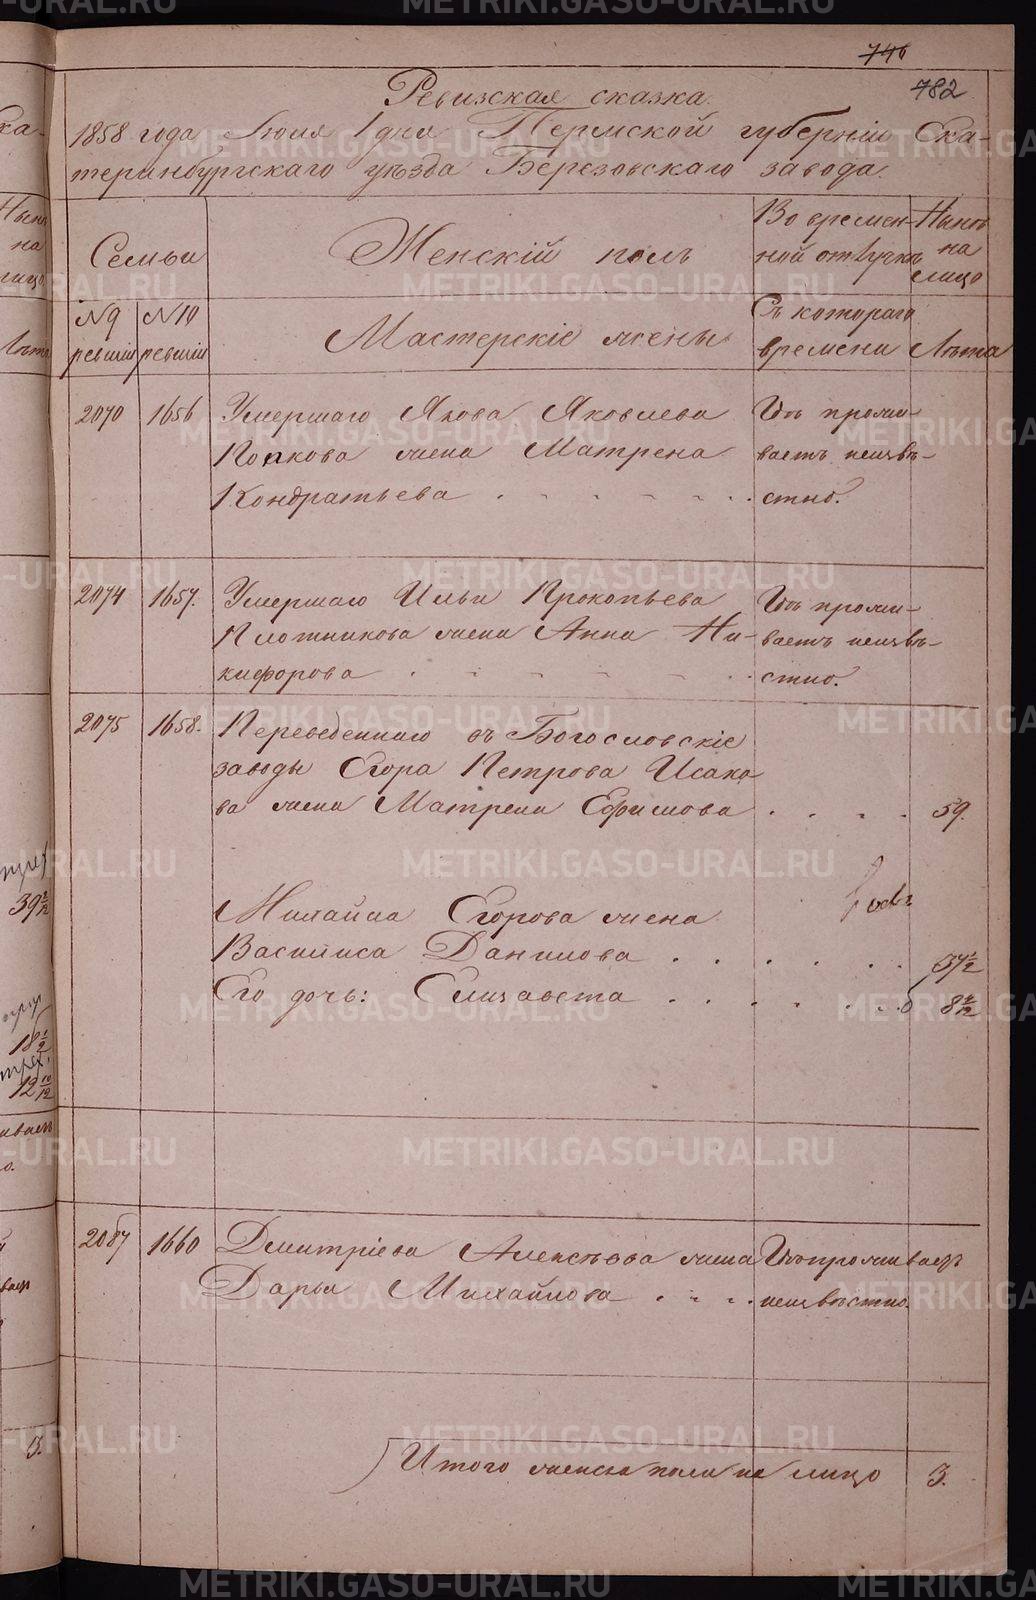 746
782
Ревизская сказка.
1858 года Июня 1 дня Пермской губерніи Ека-
теринбургскаго уѣзда Березовскаго завода.
Семьи
Женскій полъ
Во времен-
ной отлучкѣ
Нынѣ
на
лицо
N9
ревизіи
N10
ревизіи
Мастерскіе жены
Съ котораго
времени
Лѣта
2070 1656 Умершаго Якова Яковлева
жена Матрена
Кондратьева
Гдѣ прожи-
ваетъ неизвѣ-
стно.
2074 1657. Умершаго Ильи Прокопьева
Плотникова жена Анна Ни-
кифорова
Гдѣ прожи-
ваетъ неизвѣ-
стно.
2075 1658. Переведеннаго въ Богословскіе
заводы Егора Петрова Исако-
ва жена Матрена Ефимова 59.
Михайла Егорова жена
Василиса Данилова 37 1/2
Его дочь: Елизавета 8 2/12
2087 1660 Дмитріева Алексѣева жена
Дарья Михайлова
Гдѣ проживаетъ
неизвѣстно.
Итого женска пола на лицо 3.
METRIKI.GASO-URAL.RU